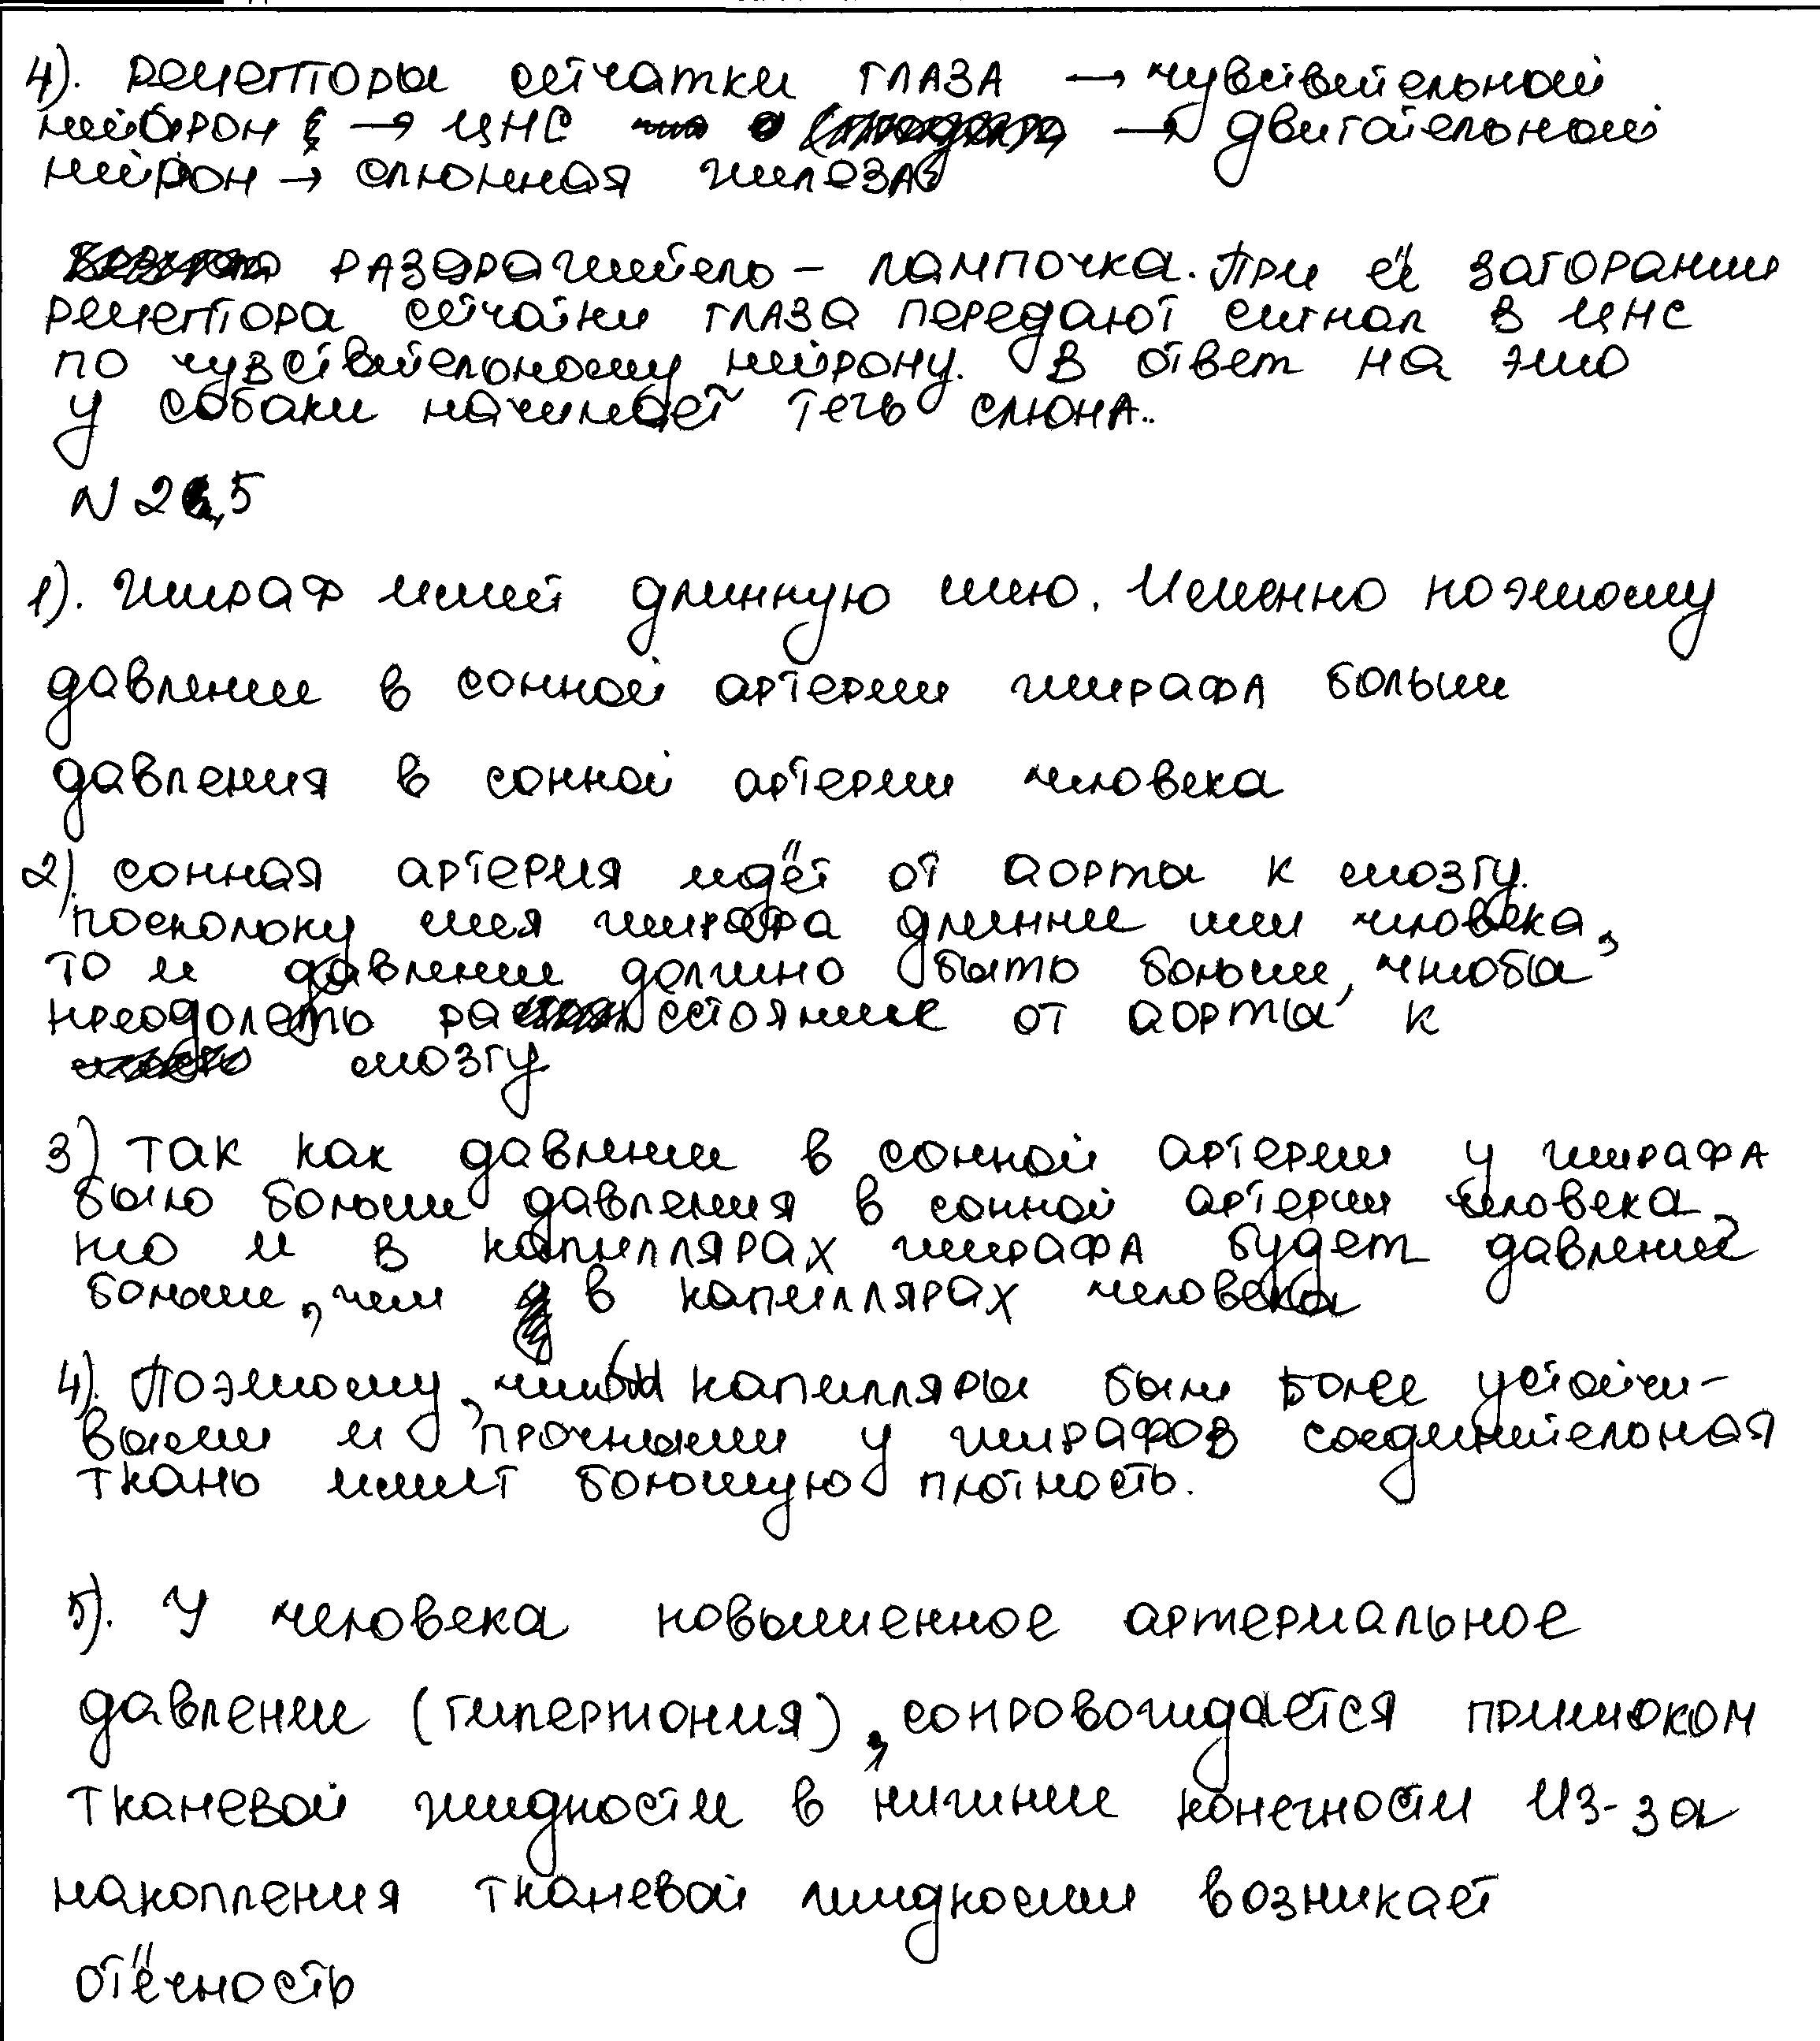 4). рецепторы сетчатки глаза → чувствительный
нейрон → ЦНС → двигательный
нейрон → слюнная железа
раздражитель – лампочка. При её загорании
рецептора сетчатки глаза передают сигнал в ЦНС
по чувствительному нейрону. В ответ на это
у собаки начинает течь слюна..
N 2,5
1). Жираф имеет длинную шею. Именно поэтому
давление в сонной артерии жирафа больше
давления в сонной артерии человека
2). сонная артерия идёт от аорты к мозгу.
поскольку шея жирафа длиннее шеи человека,
то и давление должно быть больше, чтобы
преодолеть расстояние от аорты к
мозгу
3) Так как давление в сонной артерии у жирафа
было больше давления в сонной артерии человека,
то и в капиллярах жирафа будет давление
больше, чем в капиллярах человека
4). Поэтому, чтобы капилляры были более устойчи-
выми и прочными у жирафов соединительная
ткань имеет большую плотность.
5). У человека повышенное артериальное
давление (гипертония), сопровождается притоком
тканевой жидкости в нижние конечности Из-за
накопления тканевой жидкости возникает
отёчность